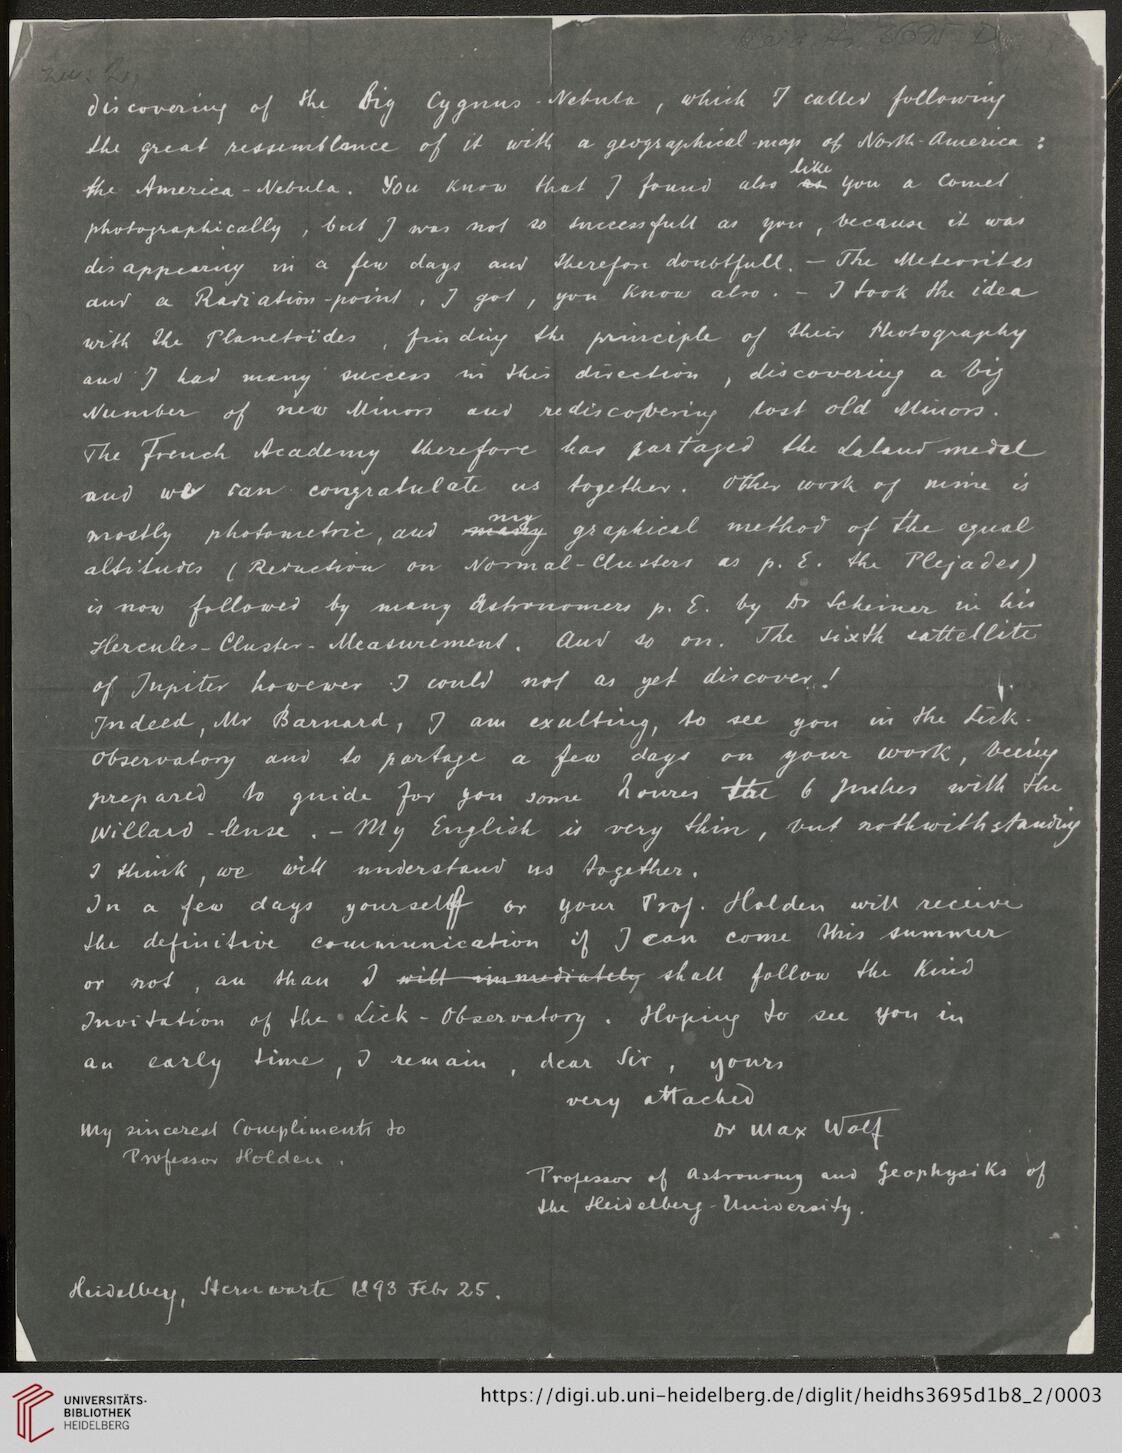 discovering of the Big Cygnus-Nebula, which I called following
the great ressemblance of it with a geographical map of North-America:
the America-Nebula. You know that I found also as like you a Comet
photographically, but I was not so successfull as you, because it was
disappearing in a few days and therefore doubtfull. – The Meteorites
and a Radiation-point, I got, you know also. – I took the idea
with the Planetoïdes, finding the principle of their Photography
and I had many success in this direction, discovering a big
Number of new Minors and rediscovering lost old Minors.
The French Academy therefore has partaged the Laland medal
and we can congratulate us together. Other work of mine is
mostly photometric, and many my graphical method of the equal
altitudes (Reduction on Normal-Clusters as p. E. the Plejades)
is now followed by many Astronomers p. E. by Dr Scheiner in his
Hercules-Cluster-Measurement. And so on. The sixth sattellite
of Jupiter howewer I could not as yet discover!
Indeed, Mr Barnard, I am exulting, to see you in the Lick-
Observatory and to partage a few days on your work, beeing
prepared to guide for you some houres the 6 Inches with the
Willard-lense. – My English is very thin, but nothwithstanding
I think, we will understand us together.
In a few days yourself or your Prof. Holden will receive
the definitive communication if I can come this summer
or not, an than I will immediately shall follow the kind
Invitation of the Lick-Observatory. Hoping to see you in
an early time, I remain, dear Sir, yours
very attached
Dr Max Wolf
My sincerest Compliments to
Professor Holden.
Professor of Astronomy and Geophysiks of
the Heidelberg-University.
Heidelberg, Sternwarte 1893 Febr 25.
UNIVERSITÄTS-
BIBLIOTHEK
HEIDELBERG
https://digi.ub.uni-heidelberg.de/diglit/heidhs3695d1b8_2/0003